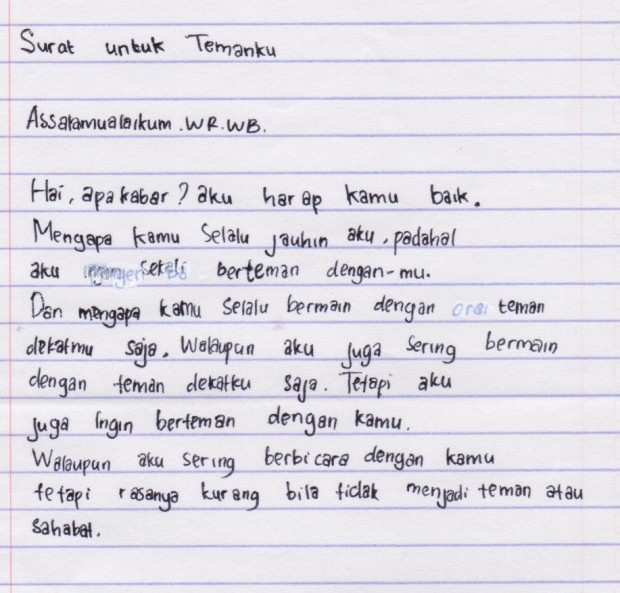 Surat untuk Temanku
Assalamualaikum.WR.WB.
Hai, apa kabar? aku harap kamu baik.
Mengapa kamu selalu jauhin aku, padahal
aku sekali berteman dengan-mu.
Dan mengapa kamu selalu bermain dengan teman
dekatmu saja. Walaupun aku juga sering bermain
dengan teman dekatku saja. Tetapi aku
juga ingin berteman dengan kamu.
Walaupun aku sering berbicara dengan kamu
tetapi rasanya kurang bila tidak menjadi teman atau
sahabat.